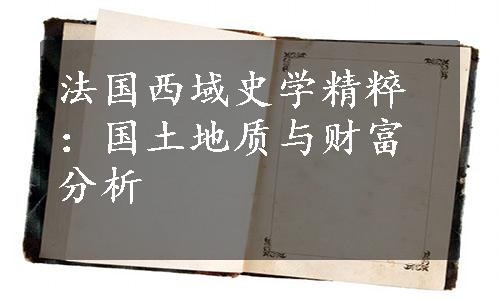 法国西域史学精粹
：国土地质与财富
分析